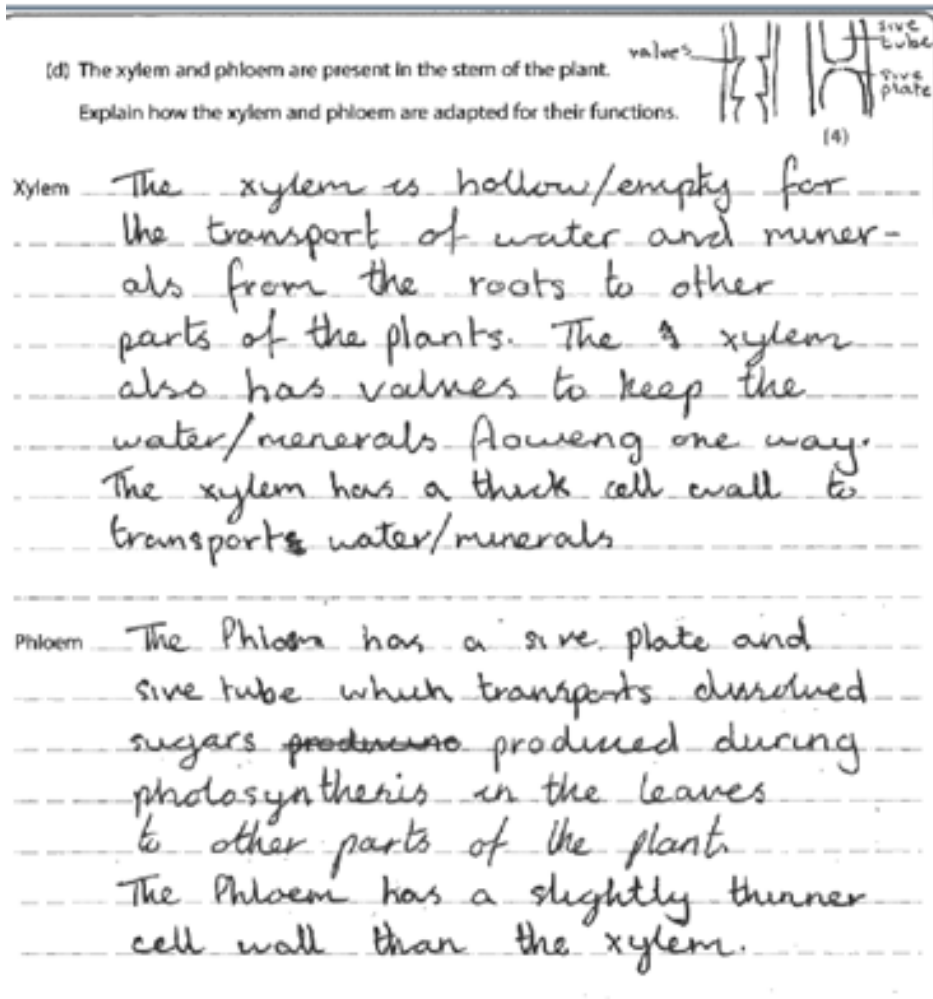 (d) The xylem and phloem are present in the stem of the plant.
Explain how the xylem and phloem are adapted for their functions.
(4)
valves
sive
tube
sive
plate
Xylem The xylem is hollow/empty for
the transport of water and miner-
als from the roots to other
parts of the plants. The xylem
also has valves to keep the
water/menerals floweng one way.
The xylem has a thick cell wall to
transport water/minerals
Phloem The Phloem has a sive plate and
sive tube which transports dissolved
sugars produced during
photosynthesis in the leaves
to other parts of the plant.
The Phloem has a slightly thinner
cell wall than the xylem.